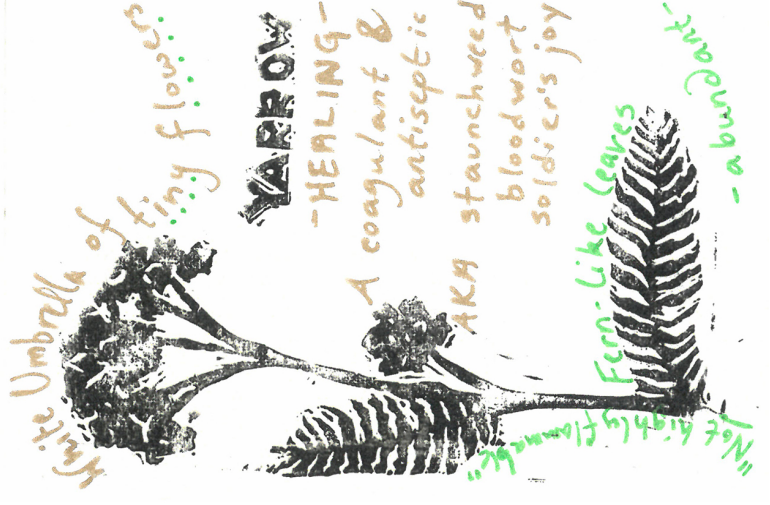 White Umbrella of
tiny flowers
YARROW
-HEALING-
A coagulant &
antiseptic
AKA staunchweed
bloodwort
soldier's joy
Fern-like leaves
-abundant-
"Not highly flammable"